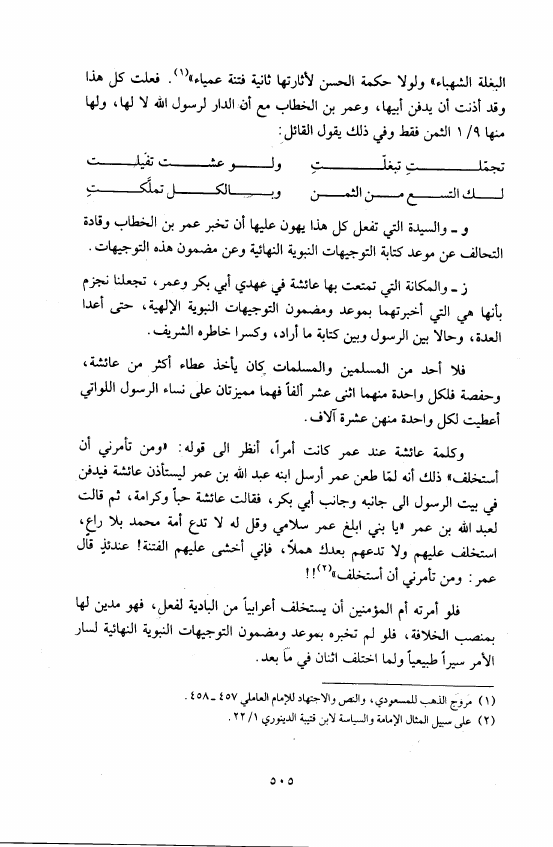 البغلة الشهباء» ولولا حكمة الحسن لأثارتها ثانية فتنة عمياء»(١). فعلت كل هذا
وقد أذنت أن يدفن أبيها، وعمر بن الخطاب مع أن الدار لرسول الله لا لها، ولها
منها ١/٩ الثمن فقط وفي ذلك يقول القائل:
تجمّلــت تبغلّــت ولــو عشــت تفيّلــت
لــك التســع مــن الثمــن وبــالكــل تملّكــت
و ـ والسيدة التي تفعل كل هذا يهون عليها أن تخبر عمر بن الخطاب وقادة
التحالف عن موعد كتابة التوجيهات النبوية النهائية وعن مضمون هذه التوجيهات.
ز ـ والمكانة التي تمتعت بها عائشة في عهدي أبي بكر وعمر، تجعلنا نجزم
بأنها هي التي أخبرتهما بموعد ومضمون التوجيهات النبوية الإلهية، حتى أعدا
العدة، وحالا بين الرسول وبين كتابة ما أراد، وكسرا خاطره الشريف.
فلا أحد من المسلمين والمسلمات كان يأخذ عطاء أكثر من عائشة،
وحفصة فلكل واحدة منهما اثنى عشر ألفاً فهما مميزتان على نساء الرسول اللواتي
أعطيت لكل واحدة منهن عشرة آلاف.
وكلمة عائشة عند عمر كانت أمراً، أنظر الى قوله: «ومن تأمرني أن
أستخلف» ذلك أنه لمّا طعن عمر أرسل ابنه عبد الله بن عمر ليستأذن عائشة فيدفن
في بيت الرسول الى جانبه وجانب أبي بكر، فقالت عائشة حباً وكرامة، ثم قالت
لعبد الله بن عمر «يا بني ابلغ عمر سلامي وقل له لا تدع أمة محمد بلا راع،
استخلف عليهم ولا تدعهم بعدك هملاً، فإني أخشى عليهم الفتنة! عندئذٍ قال
عمر: ومن تأمرني أن أستخلف»(٢)!!
فلو أمرته أم المؤمنين أن يستخلف أعرابياً من البادية لفعل، فهو مدين لها
بمنصب الخلافة، فلو لم تخبره بموعد ومضمون التوجيهات النبوية النهائية لسار
الأمر سيراً طبيعياً ولما اختلف اثنان في ما بعد.
(١) مروج الذهب للمسعودي، والنص والاجتهاد للإمام العاملي ٤٥٧ ـ ٤٥٨.
(٢) على سبيل المثال الإمامة والسياسة لابن قتيبة الدينوري ١/٢٢.
٥٠٥